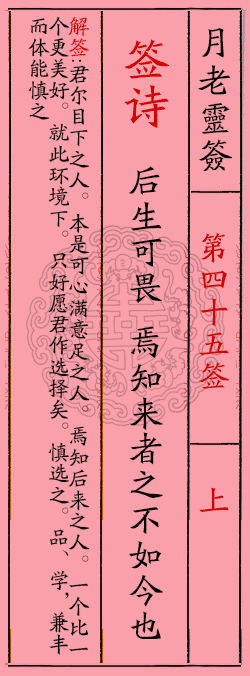 月老靈簽
第四十五签
上
签诗
后生可畏 焉知来者之不如今也
解签:君尔目下之人。本是可心满意足之人。焉知后来之人。一个比一
个更美好。就此环境下。只好愿君作选择矣。慎选之。品、学,兼丰
而体能慎之